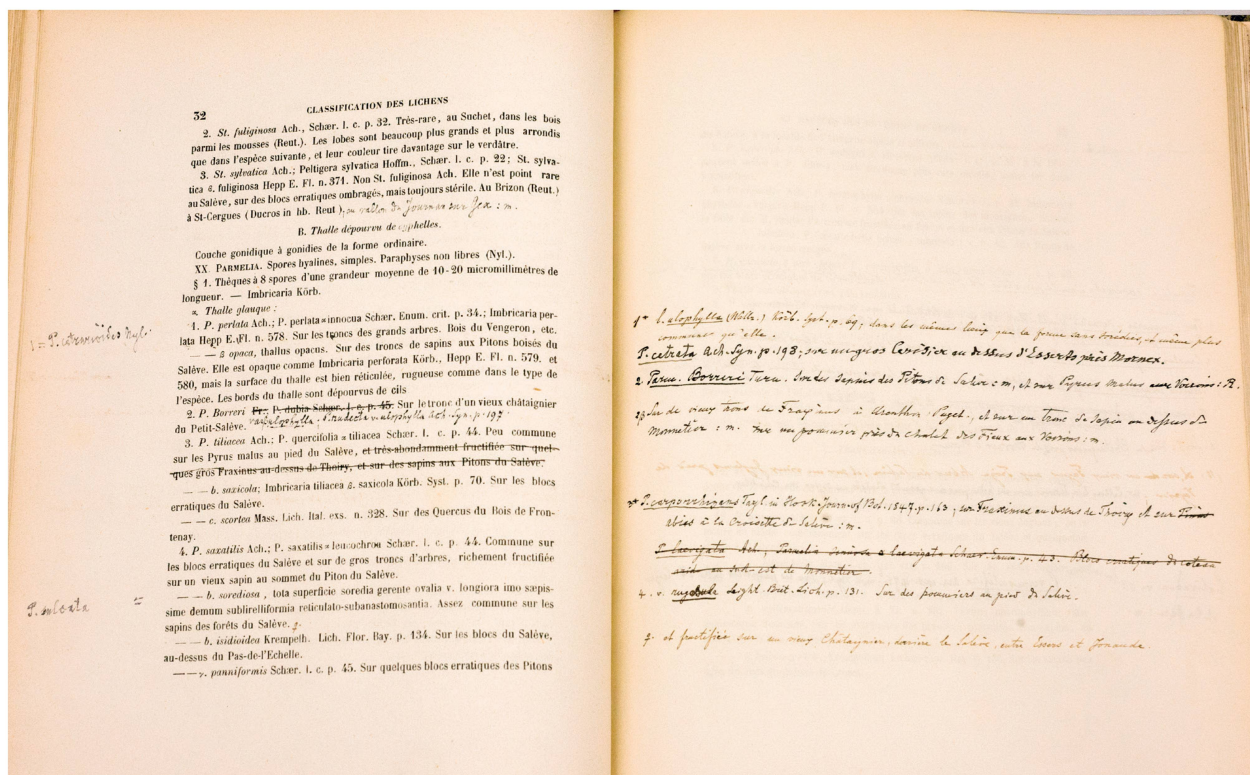 32 CLASSIFICATION DES LICHENS
2. St. fuliginosa Ach., Schær. l. c. p. 32. Très-rare, au Suchet, dans les bois
parmi les mousses (Reut.). Les lobes sont beaucoup plus grands et plus arrondis
que dans l'espèce suivante, et leur couleur tire davantage sur le verdâtre.
3. St. sylvatica Ach.; Peltigera sylvatica Hoffm., Schær. l. c. p. 22; St. sylva-
tica β. fuliginosa Hepp E. Fl. n. 371. Non St. fuliginosa Ach. Elle n'est point rare
au Salève, sur des blocs erratiques ombragés, mais toujours stérile. Au Brizon (Reut.)
à St-Cergues (Ducros in hb. Reut.), au vallon du Journan sur Gex : m.
B. Thalle dépourvu de cyphelles.
Couche gonidique à gonidies de la forme ordinaire.
XX. PARMELIA. Spores hyalines, simples. Paraphyses non libres (Nyl.).
§ 1. Thèques à 8 spores d'une grandeur moyenne de 10-20 micromillimètres de
longueur. — Imbricaria Körb.
* Thalle glauque :
1 = P. cetrarioides Nyl.
1. P. perlata Ach; P. perlata α innocua Schær. Enum. crit. p. 34.; Imbricaria per-
lata Hepp E. Fl. n. 578. Sur les troncs des grands arbres. Bois du Vengeron, etc.
— — β opaca, thallus opacus. Sur des troncs de sapins aux Pitons boisés du
Salève. Elle est opaque comme Imbricaria perforata Körb., Hepp E. Fl. n. 579. et
580, mais la surface du thalle est bien réticulée, rugueuse comme dans le type de
l'espèce. Les bords du thalle sont dépourvus de cils
2. P. Borreri Fr; P. dubia Schær. l. c. p. 45. Sur le tronc d'un vieux châtaignier
du Petit-Salève. Ach. Syn. p. 197
3. P. tiliacea Ach.; P. quercifolia α tiliacea Schær. l. c. p. 44. Peu commune
sur les Pyrus malus au pied du Salève, et très-abondamment fructifiée sur quel-
ques gros Fraxinus au-dessus de Thoiry, et sur des sapins aux Pitons du Salève.
— — b. saxicola; Imbricaria tiliacea β. saxicola Körb. Syst. p. 70. Sur les blocs
erratiques du Salève.
— — c. scortea Mass. Lich. Ital. exs. n. 328. Sur des Quercus du Bois de Fron-
tenay.
4. P. saxatilis Ach; P. saxatilis α leucochroa Schær. l. c. p. 44. Commune sur
les blocs erratiques du Salève et sur de gros troncs d'arbres, richement fructifiée
sur un vieux sapin au sommet du Piton du Salève.
P. sulcata =
— — b. sorediosa, tota superficie soredia gerente ovalia v. longiora imo sæpis-
sime demum sublirelliformia reticulato-subanastomosantia. Assez commune sur les
sapins des forêts du Salève.
— — b. isidioidea Krempelh. Lich. Flor. Bay. p. 134. Sur les blocs du Salève,
au-dessus du Pas-de-l'Echelle.
— — γ. panniformis Schær. l. c. p. 45. Sur quelques blocs erratiques des Pitons
1* l. ulophylla (Wallr.) Körb. Syst. p. 69; dans les mêmes lieux que la forme sans sorédies, et même plus
commune qu'elle.
P. cetrata Ach. Syn. p. 198; sur un gros Cerisier au dessus d'Esserts près Mornex.
2. Parm. Borreri Turn. Sur des Sapins des Pitons de Salève : m, et sur Pyrus malus aux Voirons : R.
Sur de vieux troncs de Frayiens à Arenthon Puget, et sur un tronc de Sapin au dessus de
Monnetier : m. sur un pommier près du chalet des Fieux aux Voirons : m.
P. carporrhizans Tayl. in Hook. Journ. of Bot. 1847. p. 163; sur Fraxinus au dessus de Thoiry et sur Pinus
abies à la Croisette de Salève : m.
P. laevigata Ach., Parmelia sinuosa α laevigata Schær. Enum. p. 43. Blocs erratiques du coteau
au sud-est de Monnetier.
4. v. rugosula Leight. Brit. Lich. p. 131. Sur des pommiers au pied de Salève.
et fructifiée sur un vieux Châtaignier, derrière le Salève, entre Essers et